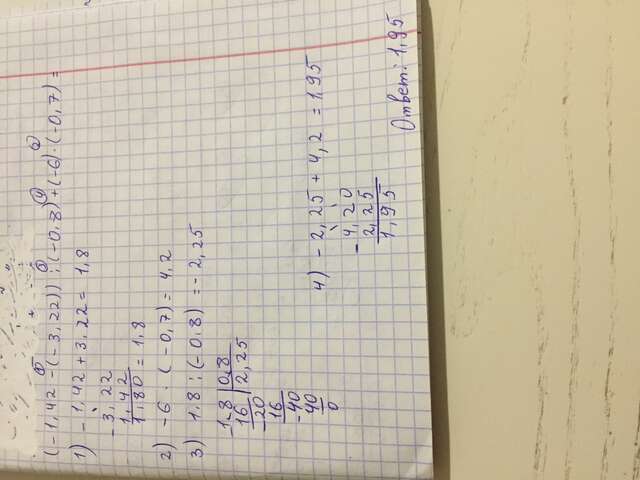 (-1,42 - (-3,22)) : (-0,8) + (-6) · (-0,7) =
1) -1,42 + 3,22 = 1,8
- 3,22
1,42
1,80 = 1,8
2) -6 · (-0,7) = 4,2
3) 1,8 : (-0,8) = -2,25
-1,8 | 0,8
16 | 2,25
-20
16
-40
40
0
4) -2,25 + 4,2 = 1,95
- 4,20
2,25
1,95
Ответ: 1,95